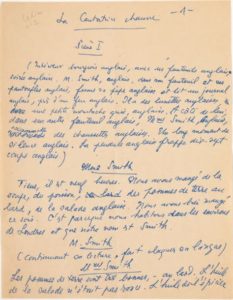 La Cantatrice chauve -1-
Scène I
(Intérieur bourgeois anglais, avec des fauteuils anglais.
soirée anglaise. M. Smith, anglais, dans son fauteuil et ses
pantoufles anglais, fume sa pipe anglaise et lit un journal
anglais, près d'un feu anglais. Il a des lunettes anglaises,
une petite moustache grise, anglaise. A côté de lui,
dans un autre fauteuil anglais, Mme Smith, Anglaise,
raccommode des chaussettes anglaises. Un long moment de
silence anglais. La pendule anglaise frappe dix-sept
coups anglais)
Mme Smith
Tiens, il est neuf heures. Nous avons mangé de la
soupe, du poisson, des pommes de terre au
lard, de la salade anglaise. Nous avons bien mangé
ce soir. C'est parce que nous habitons dans les environs
de Londres et que notre nom est Smith
M. Smith
(continuant sa lecture, fait claquer sa langue)
Mme Smith
Les pommes de terre sont très bonnes, au lard. L'huile
de la salade n'était pas rance. L'huile de l'épicier